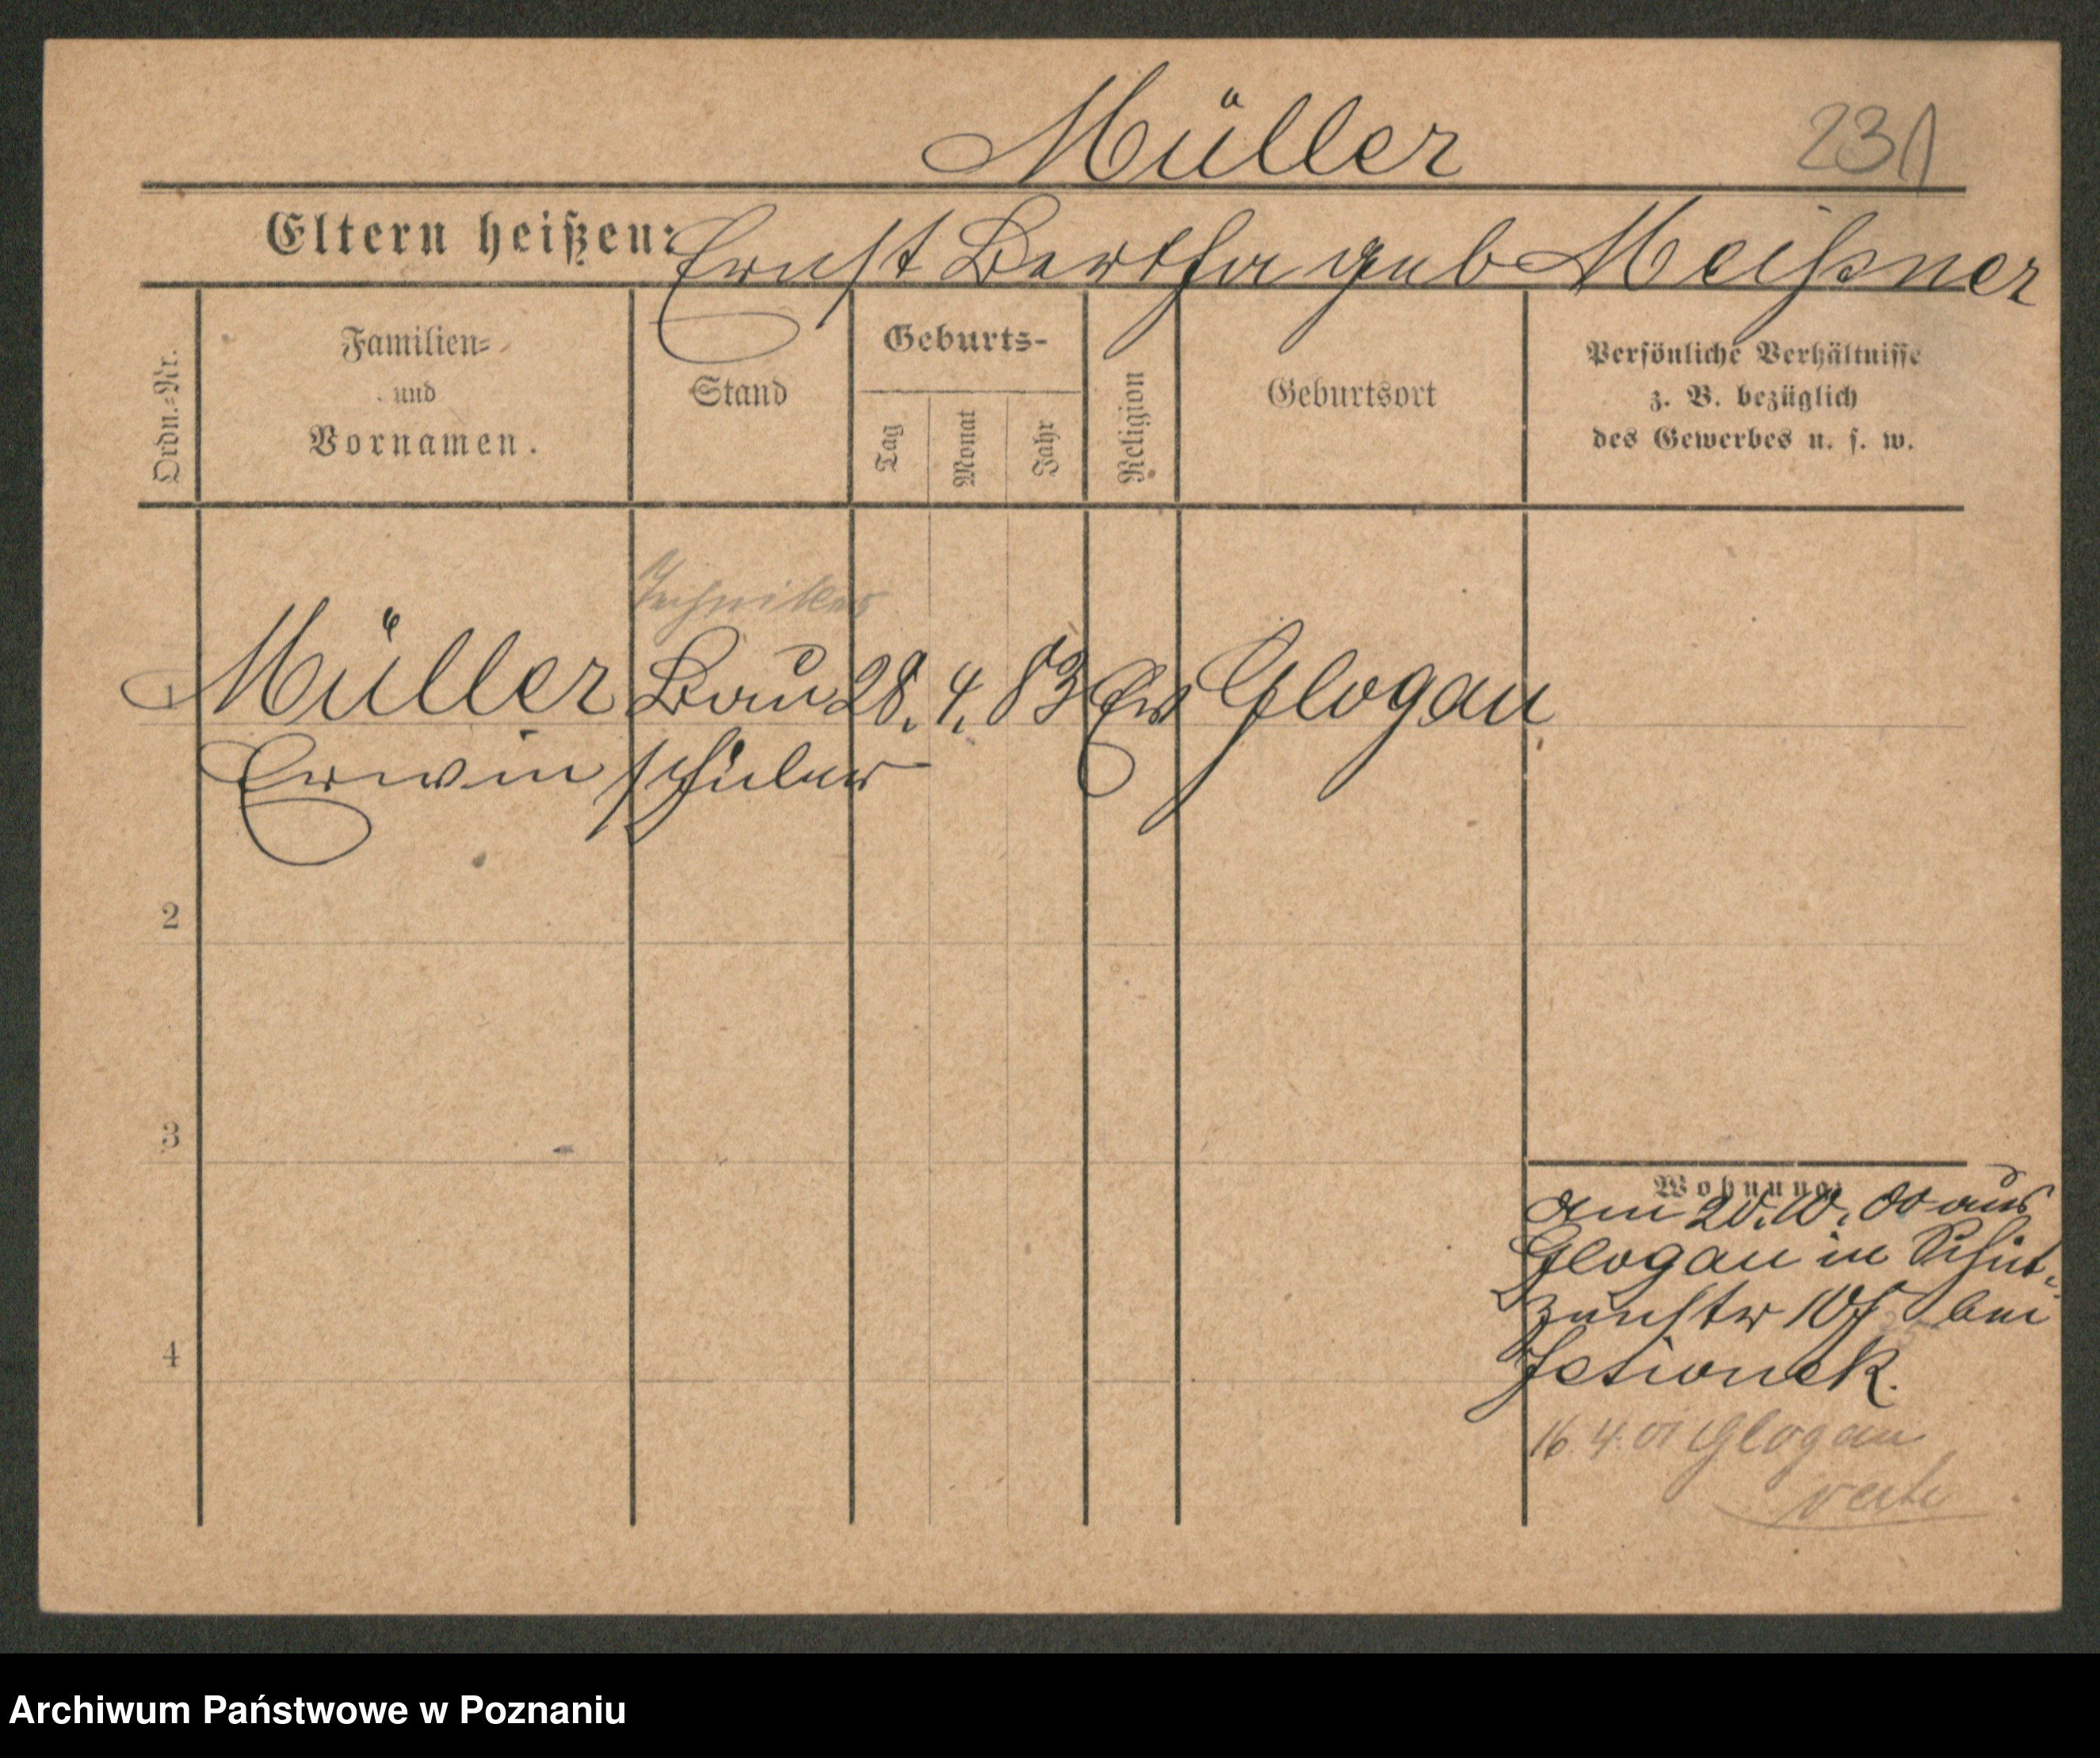 Müller
231
Eltern heißen: Ernst Bertha geb Meißner
Ordn.-Nr.
Familien-
und
Vornamen.
Stand
Geburts-
Tag
Monat
Jahr
Religion
Geburtsort
Persönliche Verhältnisse
z. B. bezüglich
des Gewerbes u. s. w.
Techniker
1 Müller Bau 28. 4. 83 Ev Glogau
Erwin schüler
2
3
4
Wohnung:
am 20.10.00 aus
Glogau in Schüt-
zenstr bei
16.4.01 Glogau
verte
Archiwum Państwowe w Poznaniu